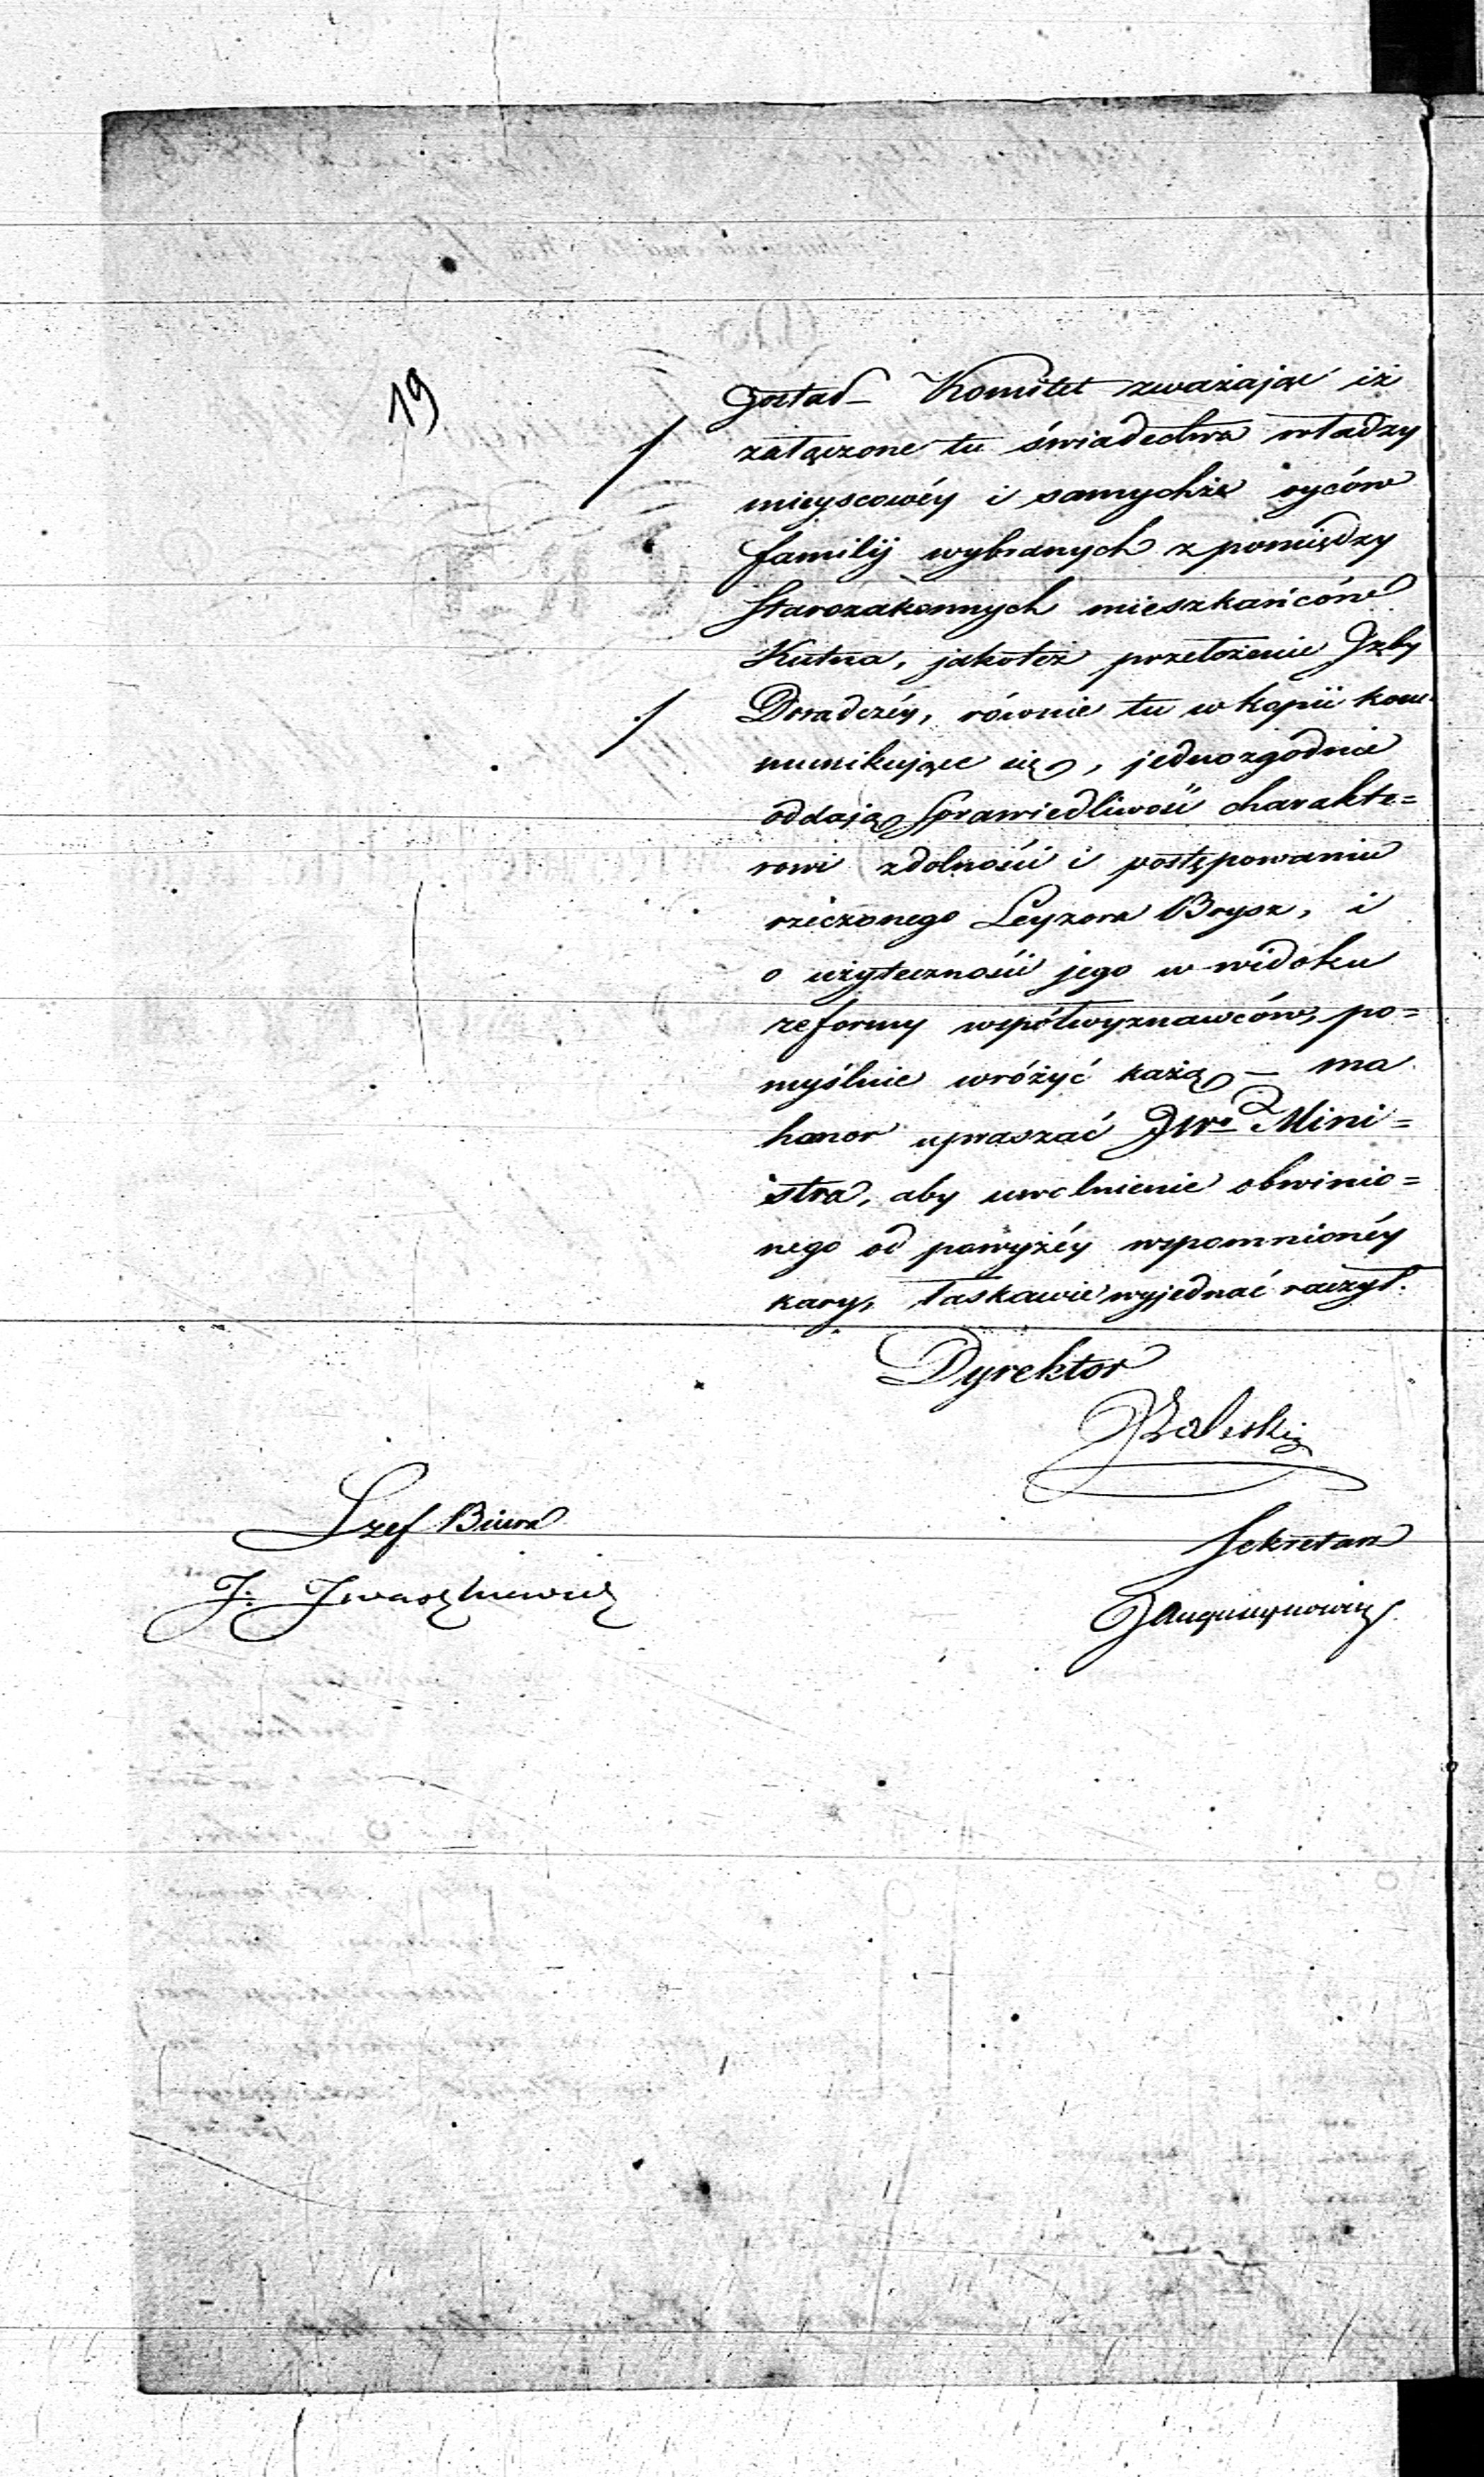 19
został Komitet zważając iż
załączone tu świadectwa władzy
mieyscowéy i samychże oyców
familij wybranych z pomiędzy
Starozakonnych mieszkańców
Kutna, jakoteż przełożenie Izby
Doradczéy, równie tu w kopii kom-
munikujące się, jednozgodnie
oddają sprawiedliwość charakte=
rowi zdolności i postępowaniu
rzeczonego Leyzora Brysz, i
o użyteczności jego w widoku
reformy współwyznawców, po=
myślnie wróżyć każą – ma
honor upraszać JWo Mini=
stra, aby uwolnienie obwinio=
nego od powyżéy wspomnionéy
kary, łaskawie wyjednać raczył.
Dyrektor
Zaleski
Szef Biura
Sekretarz
J. Iwaszkiewicz